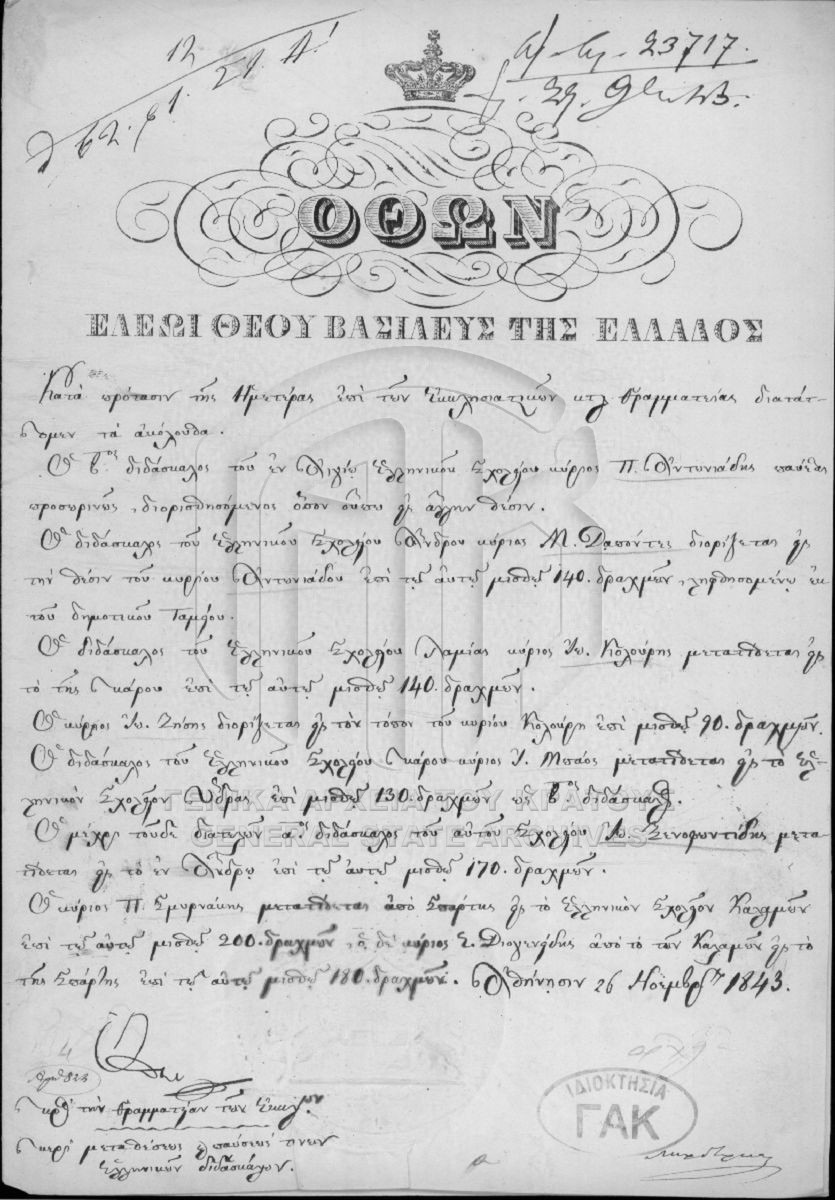 12
62.
21 Α!
23717.
ΟΘΩΝ
ΕΛΕΩΙ ΘΕΟΥ ΒΑΣΙΛΕΥΣ ΤΗΣ ΕΛΛΑΔΟΣ
Κατὰ πρότασιν τῆς Ημετέρας ἐπὶ τῶν Ἐκκλησιαστικῶν κτλ Γραμματείας διατάτ-
τομεν τὰ ἀκόλουθα.
Ὁ β.ος διδάσκαλος τοῦ ἐν Αἰγίῳ Ἑλληνικοῦ Σχολείου κύριος Π. Ἀντωνιάδης παύεται
προσωρινῶς, διορισθησόμενος ὅπου οὔπω εἰς ἄλλην θέσιν.
Ὁ διδάσκαλος τοῦ Ἑλληνικοῦ Σχολείου Ἄνδρου κύριος Μ. Δαπόντες διορίζεται εἰς
τὴν θέσιν τοῦ κυρίου Ἀντωνιάδου ἐπὶ τῷ αὐτῷ μισθῷ 140. δραχμῶν, ληφθησομένῳ ἐκ
τοῦ δημοτικοῦ Ταμείου.
Ὁ διδάσκαλος τοῦ Ἑλληνικοῦ Σχολείου Λαμίας κύριος Ἰω. Κολούρης μετατίθεται εἰς
τὸ τῆς Πάρου ἐπὶ τῷ αὐτῷ μισθῷ 140. δραχμῶν.
Ὁ κύριος Ἰω. Ζήσης διορίζεται εἰς τὸν τόπον τοῦ κυρίου Κολούρη ἐπὶ μισθῷ 90. δραχμῶν.
Ὁ διδάσκαλος τοῦ Ἑλληνικοῦ Σχολείου Πάρου κύριος Ἰ. Μπαός μετατίθεται εἰς τὸ Ἑλ-
ληνικὸν Σχολεῖον Ὕδρας ἐπὶ μισθῷ 130. δραχμῶν ὡς β.ος διδάσκαλος.
Ὁ μέχρι τοῦδε διατελῶν α.ος διδάσκαλος τοῦ αὐτοῦ Σχολείου Ἰω. Ξενοφωντίδης μετα-
τίθεται εἰς τὸ ἐν Ἄνδρῳ ἐπὶ τῷ αὐτῷ μισθῷ 170. δραχμῶν.
Ὁ κύριος Π. Σμυρνάκης μετατίθεται ἀπὸ Σπάρτης εἰς τὸ Ἑλληνικὸν Σχολεῖον Καλαμῶν
ἐπὶ τῷ αὐτῷ μισθῷ 200. δραχμῶν, ὁ δὲ κύριος Σ. Διογενείδης ἀπὸ τὸ τῶν Καλαμῶν εἰς τὸ
τῆς Σπάρτης ἐπὶ τῷ αὐτῷ μισθῷ 180. δραχμῶν. Ἀθήνησιν 26 Νοεμβρ. 1843.
Ὄθων
Πρὸς τὴν Γραμματείαν τῶν Ἐκκλ.ῶν
Περὶ μεταθέσεως καὶ παύσεώς τινων
Ἑλληνικῶν διδασκάλων.
ΓΕΝΙΚΑ ΑΡΧΕΙΑ ΤΟΥ ΚΡΑΤΟΥΣ
GENERAL STATE ARCHIVES
ΙΔΙΟΚΤΗΣΙΑ
ΓΑΚ